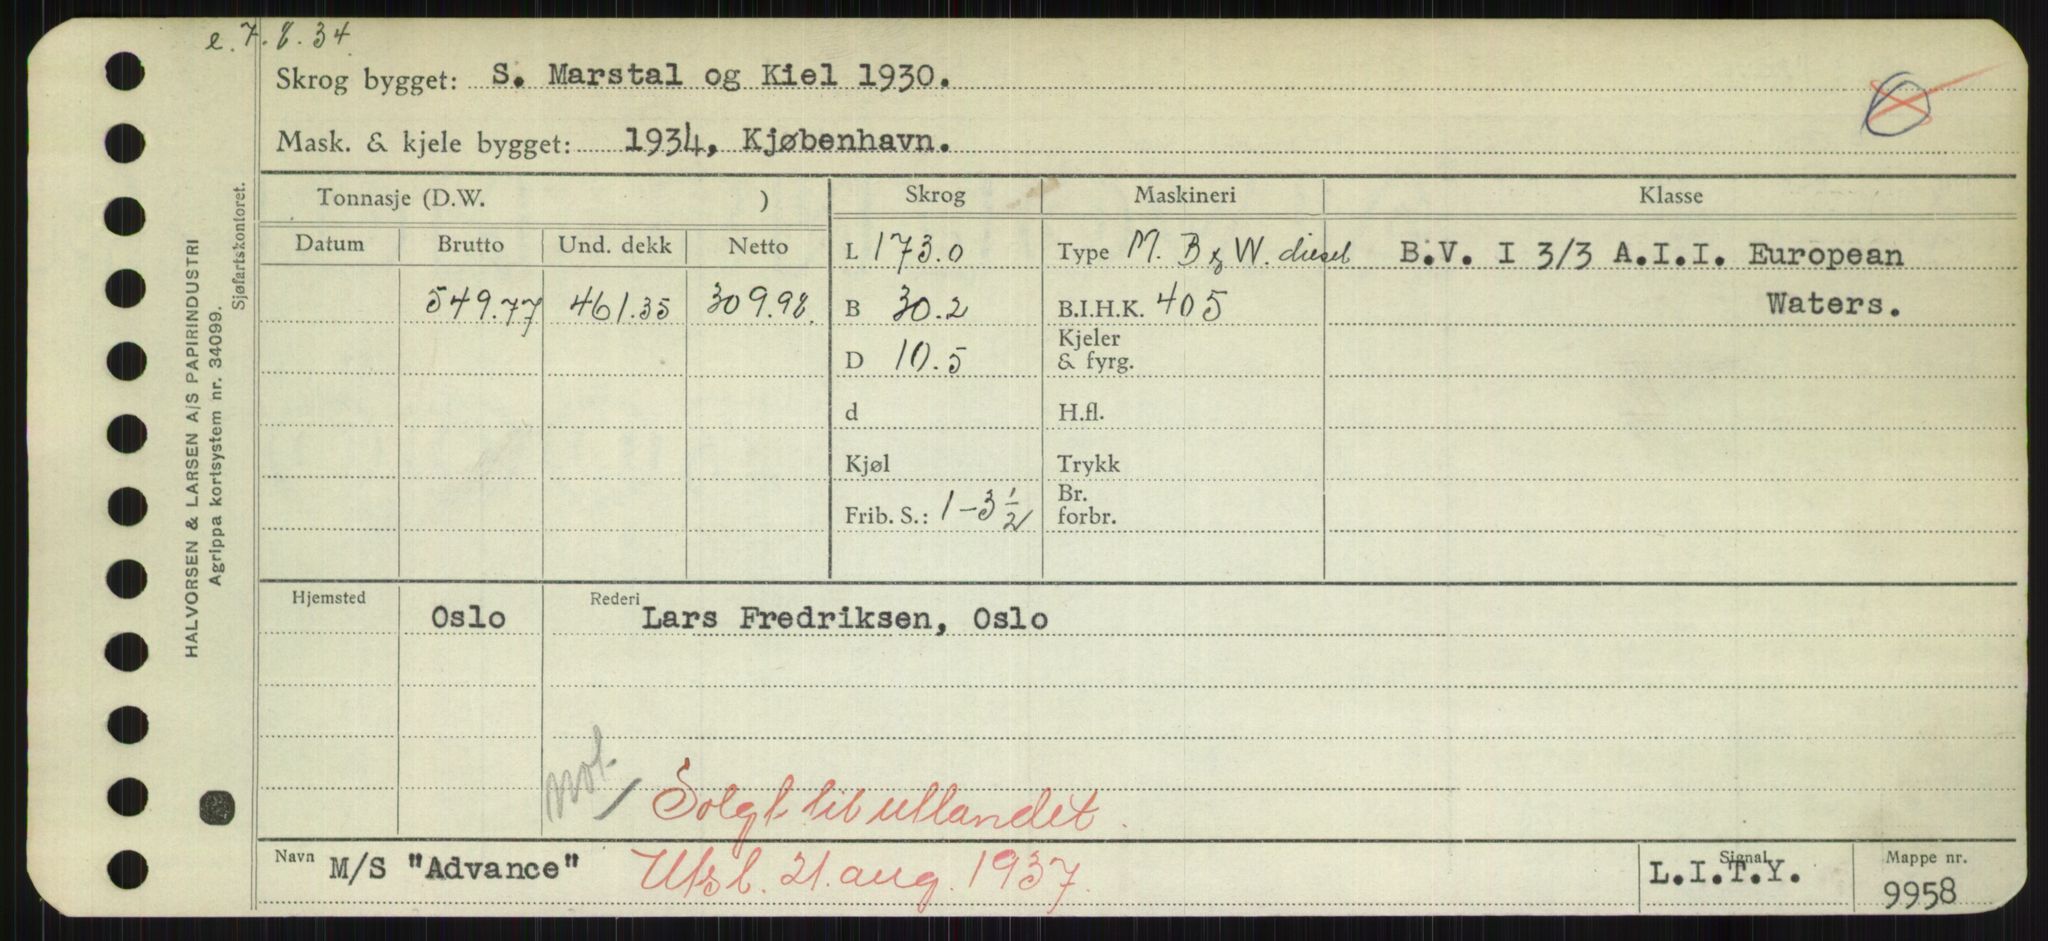 e. 7. 8. 34
Skrog bygget: S. Marstal og Kiel 1930.
Mask. & kjele bygget: 1934, Kjøbenhavn.
Tonnasje (D.W. )
Skrog
Maskineri
Klasse
Datum
Brutto
Und. dekk
Netto
549.77
461.35
309.98
L 173.0
B 30.2
D 10.5
d
Kjøl
Frib. S.: 1-3 1/2
Type M. B & W. diesel
B.I.H.K. 405
Kjeler
& fyrg.
H.fl.
Trykk
Br.
forbr.
B.V. I 3/3 A.I.I. European
Waters.
Hjemsted
Oslo
Rederi
Lars Fredriksen, Oslo
not.
Solgt til utlandet.
Navn M/S "Advance"
Utsl. 21. aug. 1937.
Signal
L.I.T.Y.
Mappe nr.
9958
HALVORSEN & LARSEN A/S PAPIRINDUSTRI
Agrippa kortsystem nr. 34099.
Sjøfartskontoret.